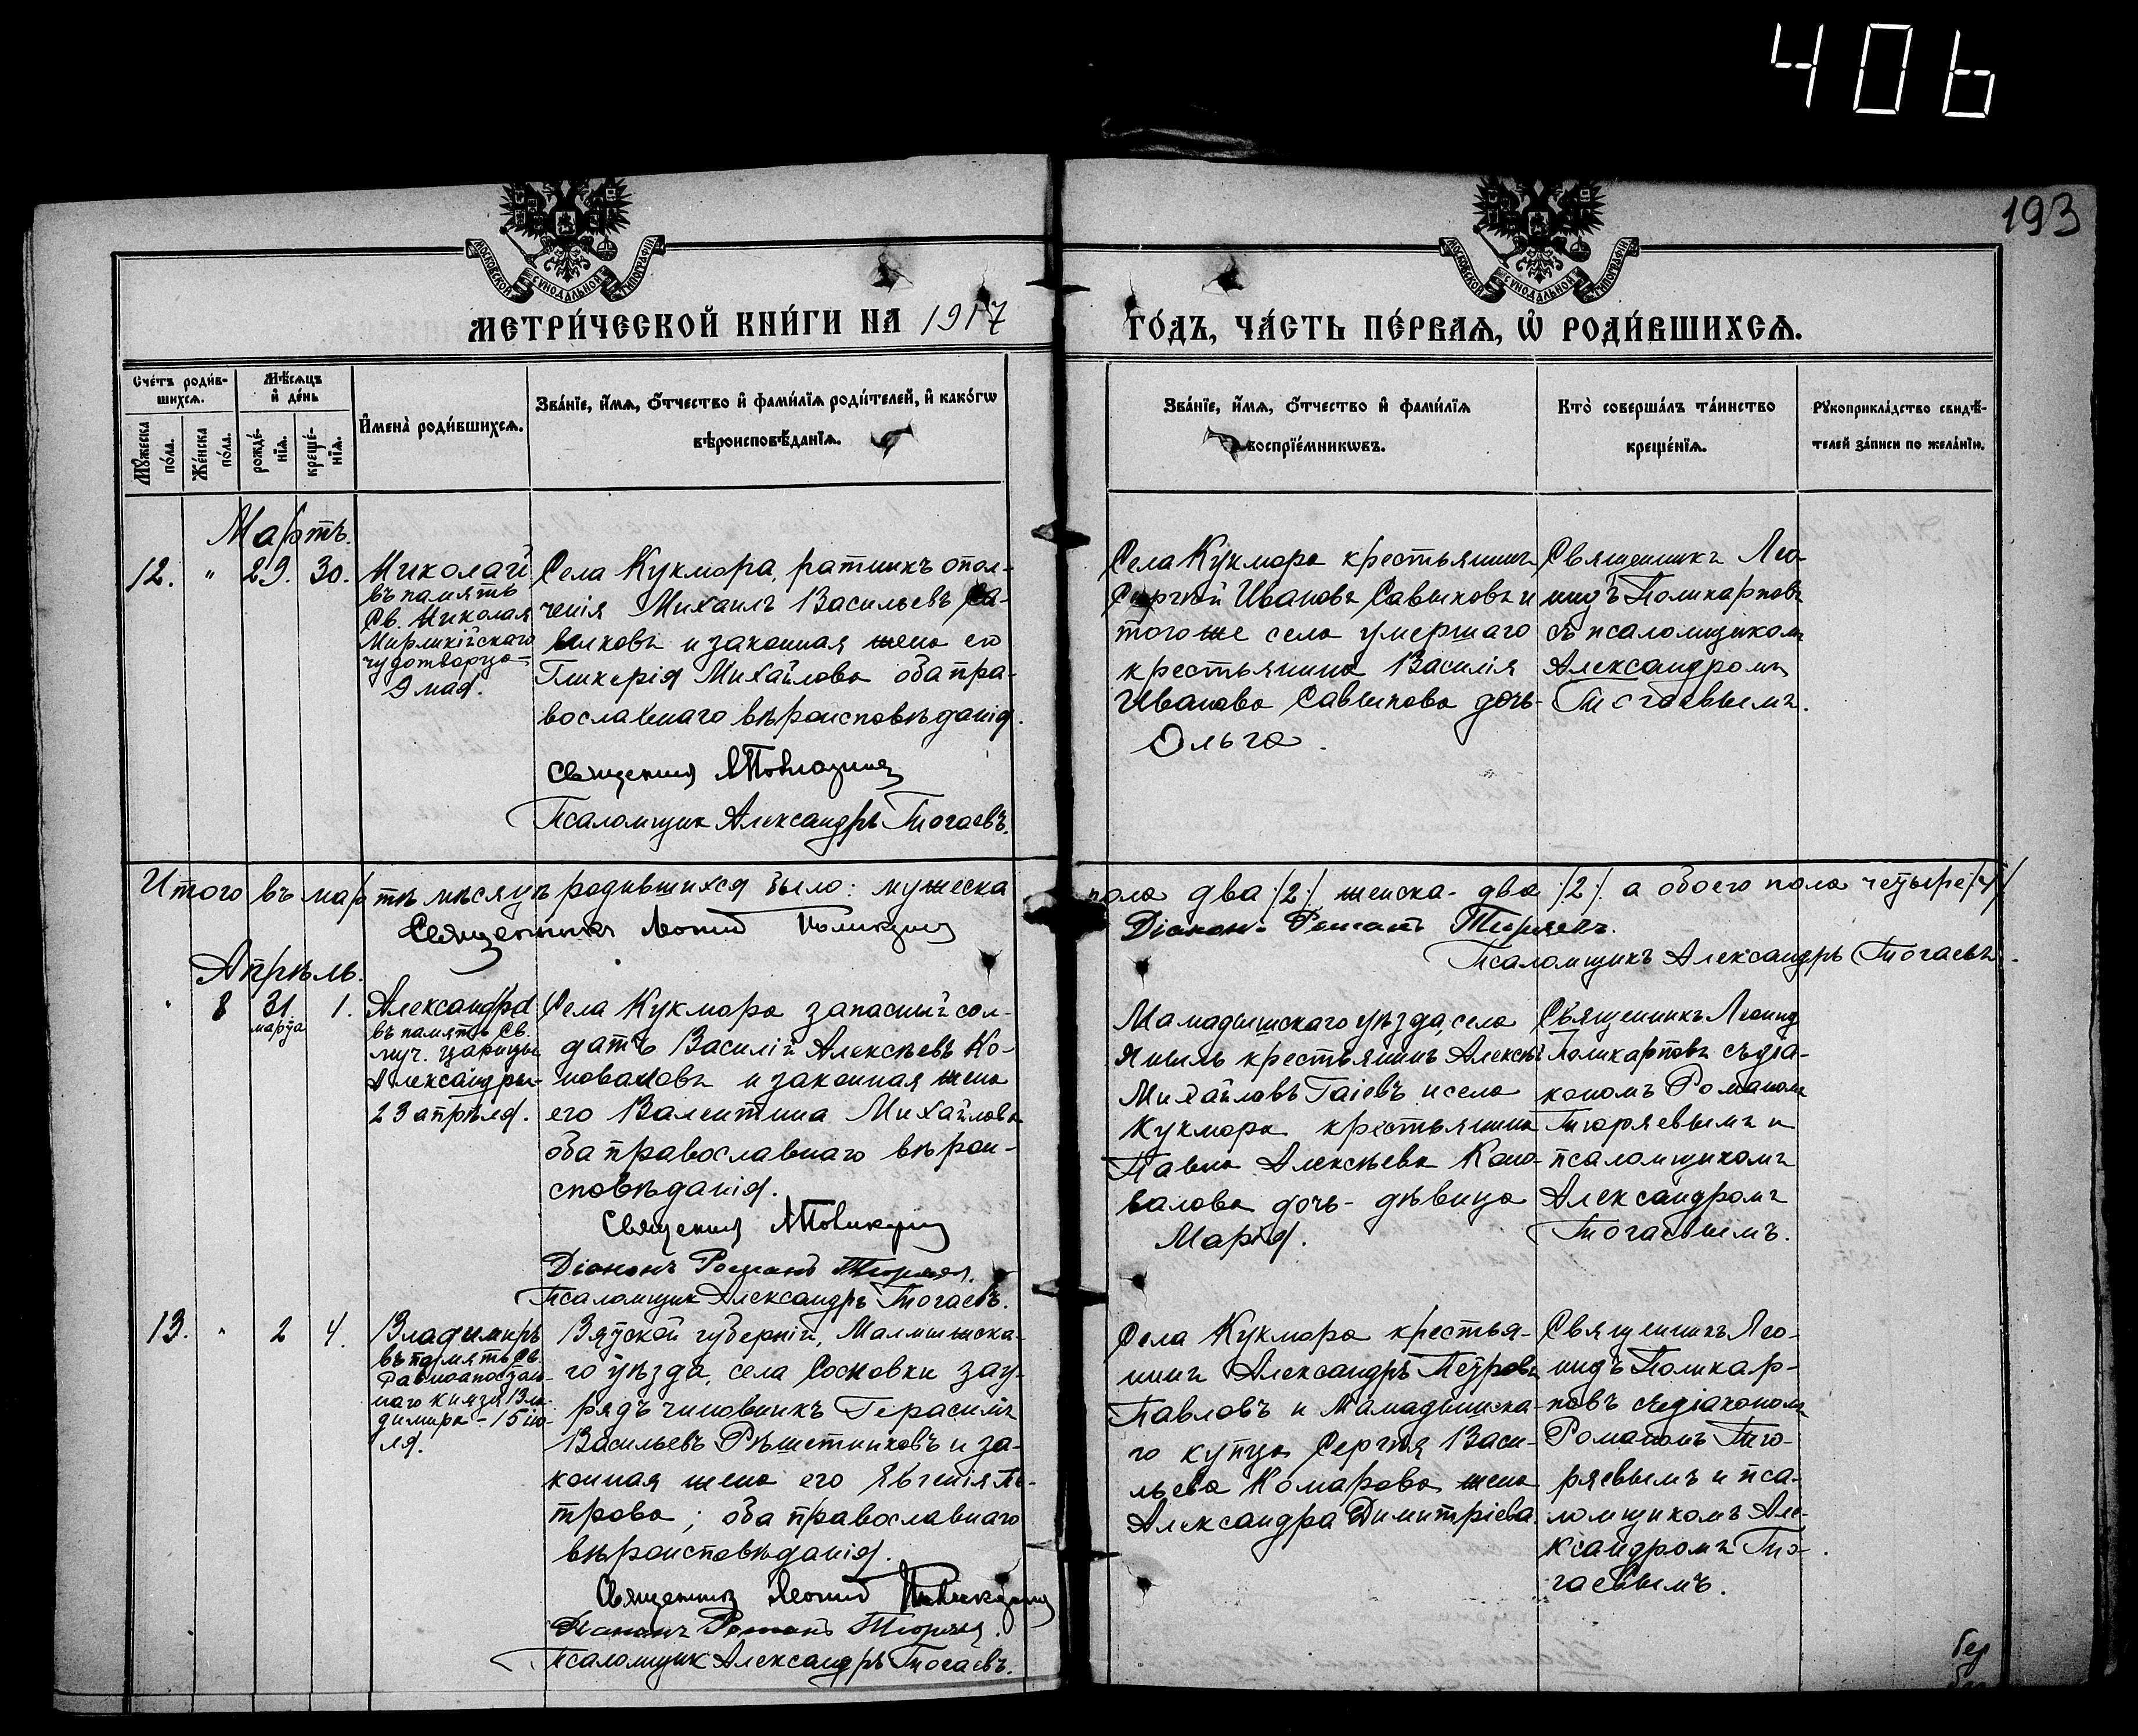 406
193
МОСКОВСКОЙ СУНОДАЛЬНОЙ ТИПОГРАФІИ
МОСКОВСКОЙ СУНОДАЛЬНОЙ ТИПОГРАФІИ
МЕТРИ́ЧЕСКОЙ КНИ́ГИ НА 1917
ГО́ДЪ, ЧА́СТЬ ПЕ́РВАѦ, Ѡ҆ РОДИ́ВШИХСѦ.
Сче́тъ роди́в-
шихсѧ.
Мѣ́сѧцъ
и҆ де́нь
Мꙋ́жеска
по́ла.
Же́нска
по́ла.
рожде́-
нїѧ.
креще́-
нїѧ.
И҆мена̀ роди́вшихсѧ.
Зва́нїе, и҆́мѧ, ѻ҆́тчество и҆ фами́лїѧ роди́телей, и҆ како́гѡ
вѣроисповѣ́данїѧ.
Зва́нїе, и҆́мѧ, ѻ҆́тчество и҆ фами́лїѧ
воспрїе́мникѡвъ.
Кто̀ соверша́лъ та́инство
креще́нїѧ.
Рꙋкоприкла́дство свидѣ́-
телей за́писи по жела́нїю.
Мартъ.
12. " 29. 30.
Николай
въ память
Св. Николая
Мирликійскаго
чудотворца-
9 мая.
Села Кукмора, ратникъ опол-
ченія Михаилъ Васильевъ Са-
вилковъ и законная жена его
Гликерія Михайлова оба пра-
вославнаго вѣроисповѣданія.
Священник
Псаломщик Александръ Тогаевъ.
Села Кукмора крестьянинъ
Сергѣй Ивановъ Савилковъ и
того же села умершаго
крестьянина Василія
Иванова Савилкова дочь-
Ольга.
Священникъ Лео-
нидъ Поликарповъ
съ псаломщикомъ
Александромъ
Тогаевымъ.
Итого въ мартѣ мѣсяцѣ родившихся было: мужеска
пола два /2/. женска- два /2/. а обоего пола четыре /4/
Священникъ Леонид Поликарпов
Діаконъ Романъ Тюряевъ.
Псаломщикъ Александръ Тогаевъ.
Апрѣль.
" 8 31 марта 1.
Александра
въ память Св.
муч. царицы
Александры-
23 апрѣля.
Села Кукмора запасный сол-
датъ Василій Алексѣевъ Ко-
новаловъ и законная жена
его Валентина Михайлова
оба православнаго вѣрои-
сповѣданія.
Священник
Діаконъ Романъ Тюряев.
Псаломщик Александръ Тогаевъ.
Мамадышскаго уѣзда, села
крестьянинъ Алексѣй
Михайловъ Гаіевъ и села
Кукмора крестьянина
Павла Алексѣева Коно-
валова дочь- дѣвица
Марія.
Священникъ Леонид
Поликарповъ съ діа-
кономъ Романомъ
Тюряевымъ и
псаломщикомъ
Александромъ
Тогаевымъ.
13. " 2 4.
Владимиръ
въ память Св.
Равноапостол-
наго князя Вла-
димира - 15 ію-
ля.
Вятской губерніи, Малмышска-
го уѣзда, села Сосновки зау-
рядъ чиновникъ Герасимъ
Васильевъ Рѣшетниковъ и за-
конная жена его Евгенія Пе-
трова; оба православнаго
вѣроисповѣданія.
Священникъ Леонид Поликарпов
Діаконъ Романъ Тюряев.
Псаломщик Александръ Тогаевъ.
Села Кукмора крестья-
нинъ Александръ Петровъ
Павловъ и Мамадышска-
го купца Сергѣя Васи-
льева Комарова жена
Александра Димитріева.
Священникъ Лео-
нидъ Поликар-
повъ съ діакономъ
Романомъ Тю-
ряевымъ и пса-
ломщикомъ Але-
ксандромъ То-
гаевымъ.